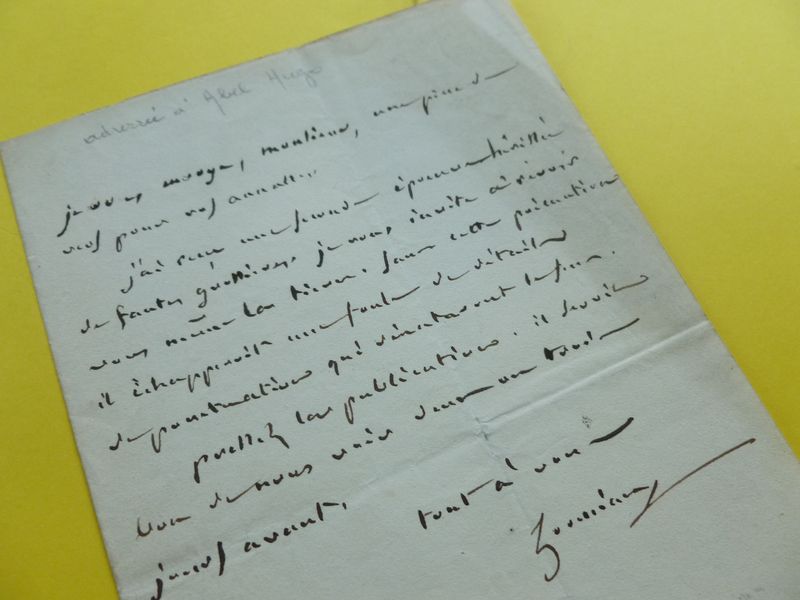 adressé à Abel Hugo
je vous envoye, monsieur, une pièce de
vers pour vos annales.
j'ai reçu une seconde épreuve hérissée
de fautes grossières je vous invite à revoir
vous même la tierce. sans cette précaution
il échapperoit une foule de détails
de ponctuation qui dénatureront le sens.
pressez la publication. il seroit
bon de nous voir deux ou trois
jours avant.
tout à vous
Soumet